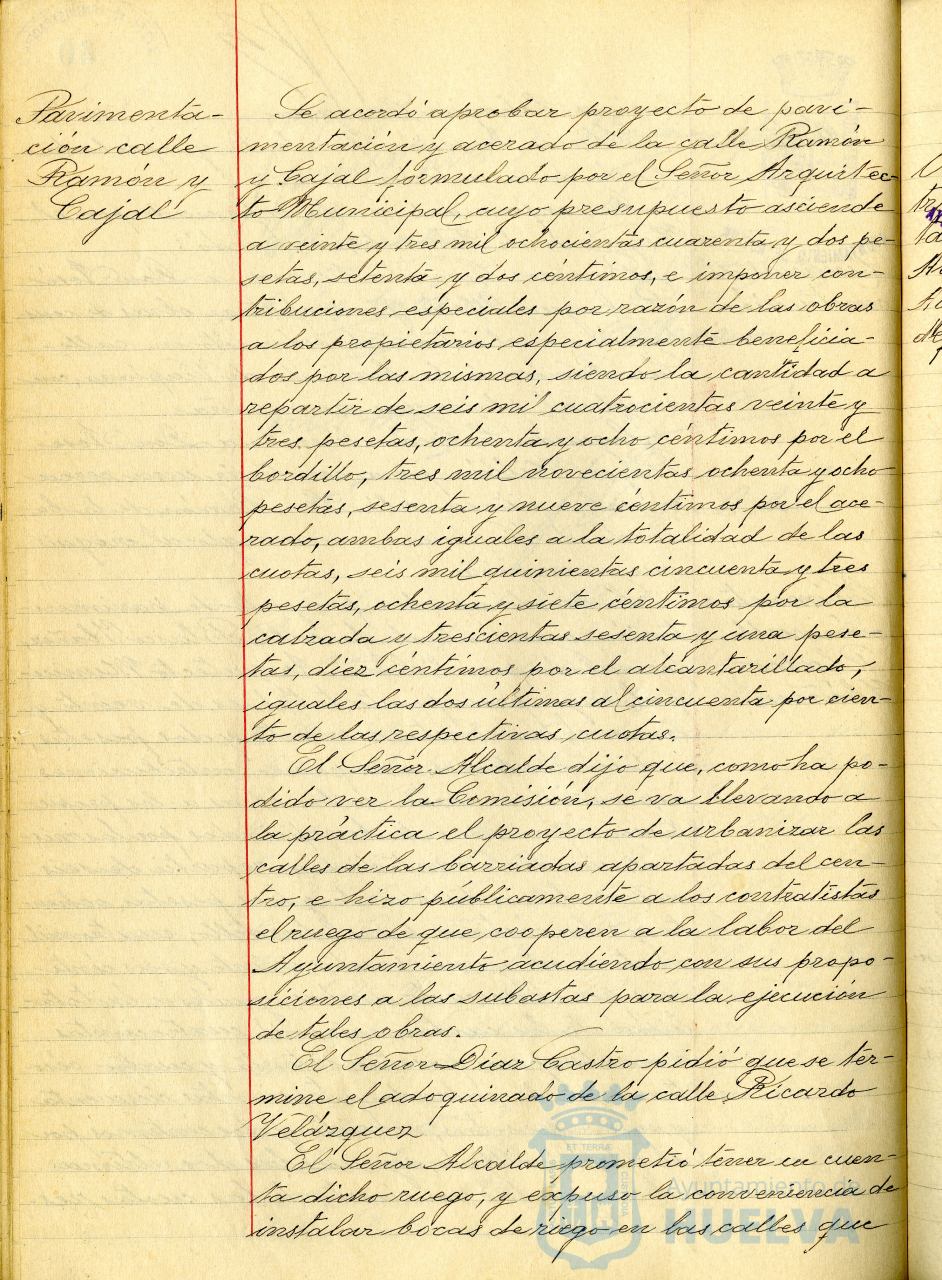 Pavimenta-
ción calle
Ramón y
Cajal
Se acordó aprobar proyecto de pavi-
mentación y acerado de la calle Ramón
y Cajal formulado por el Señor Arquitec-
to Municipal, cuyo presupuesto asciende
a veinte y tres mil ochocientas cuarenta y dos pe-
setas, setenta y dos céntimos, e imponer con-
tribuciones especiales por razón de las obras
a los propietarios especialmente beneficia-
dos por las mismas, siendo la cantidad a
repartir de seis mil cuatrocientas veinte y
tres pesetas, ochenta y ocho céntimos por el
bordillo, tres mil novecientas ochenta y ocho
pesetas, sesenta y nueve céntimos por el ace-
rado, ambas iguales a la totalidad de las
cuotas, seis mil quinientas cincuenta y tres
pesetas, ochenta y siete céntimos por la
calzada y trescientas sesenta y una pese-
tas, diez céntimos por el alcantarillado,
iguales las dos últimas al cincuenta por cien-
to de las respectivas cuotas.
El Señor Alcalde dijo que, como ha po-
dido ver la Comisión, se va llevando a
la práctica el proyecto de urbanizar las
calles de las barriadas apartadas del cen-
tro, e hizo públicamente a los contratistas
el ruego de que cooperen a la labor del
Ayuntamiento acudiendo con sus propo-
siciones a las subastas para la ejecución
de tales obras.
El Señor Díaz Castro pidió que se tér-
mine el adoquinado de la calle Ricardo
Velázquez
El Señor Alcalde prometió tener en cuen-
ta dicho ruego, y expuso la conveniencia de
instalar bocas de riego en las calles que
Ayuntamiento de
HUELVA